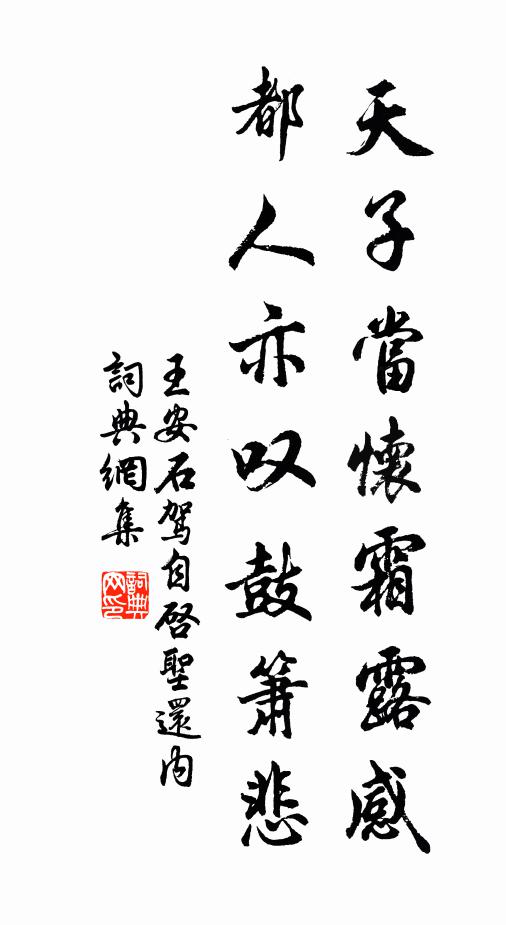 天子當懷霜露感
都人亦叹鼓簫悲
王安石駕自啓聖還内
詞典網集
詞典网印